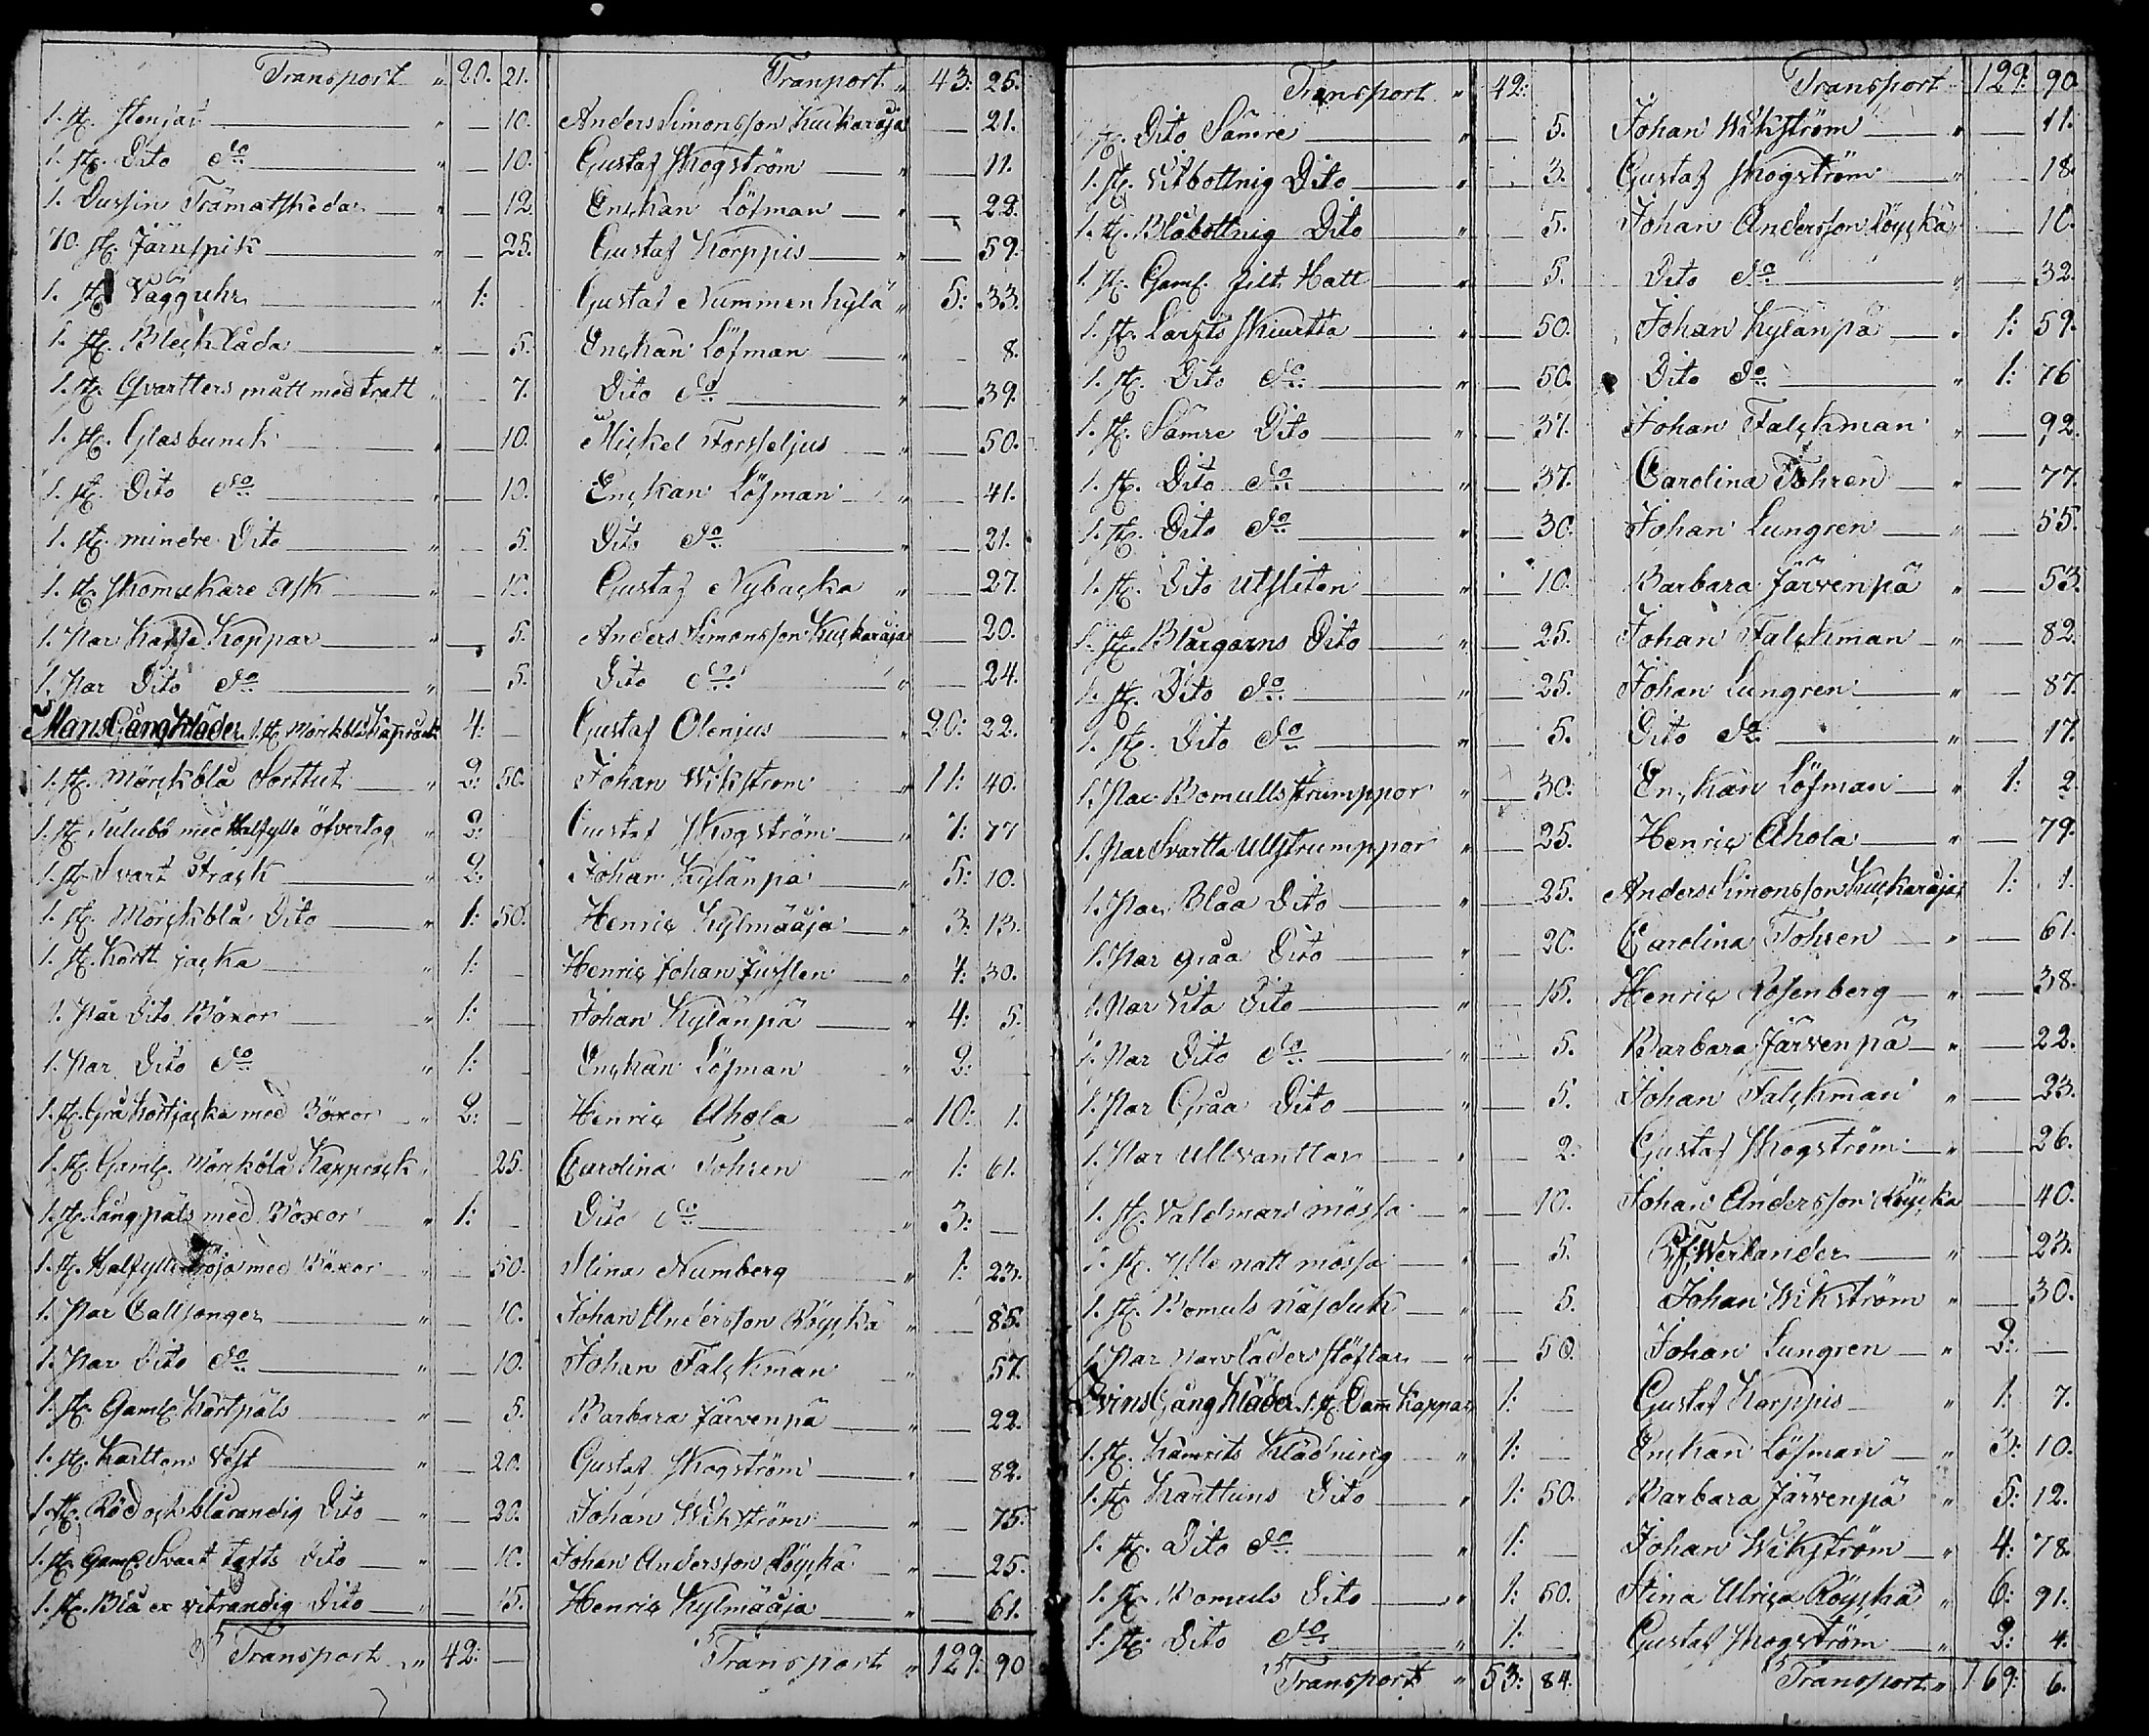 Transport " 20. 21.
1. st. Stenfat " — 10.
1. st. Dito do " — 10.
1. Dussin Trämatskedar " — 12.
70. st. Järnspik " — 25.
1. st. Vägguhr " 1:
1. st. Bleck låda " — 5.
1. st. Qvartters mått med tratt " — 7.
1. st. Glasbunck " — 10.
1. st. Dito do " — 10.
1. st. mindre Dito " — 5.
1. st. Skomakare ask " — 10.
1. Par Kaffe Koppar " — 5.
1. Par Dito do " — 5.
Mans Gång Kläder. 1. st. Mörkblå Kaprock 4: —
1. st. Mörckblå Sorttut " 2: 50.
1. st. Tulubb med Halfylle öfvertog " 3:
1. st. Svart Frack " 2:
1. st. Mörckblå Dito " 1: 50.
1. st. Kortt jacka " 1: —
1. Par Dito Böxor " 1: —
1. Par Dito do " 1: —
1. st. Grå Kortjacka med Böxor " 2: —
1. st. Gaml. Mörckblå Kapprock " 25.
1. st. Långpäls med Böxor " 1: —
1. st. Halfylle tröja med Böxor " — 50.
1. Par Callsonger " — 10.
1. Par Dito do " — 10.
1. st. Gaml. Kortpäls " — 5.
1. st. Karltons Väst " — 20.
1. st. Röd och blårandig Dito " — 20.
1. st. Gaml. Svart tafts Dito " — 10.
1. st. Blå ex vitrandig Dito " — 15.
Transport " 42: —
Tranport " 43: 25.
Anders Simonsson Kuckaräja — 21.
Gustaf Skogström " — 11.
Enckan Löfman " — 28.
Gustaf Korppis " — 59.
Gustaf Nummenkylä " 5: 33.
Enckan Löfman " — 8.
Dito do " — 39.
Mickel Forsseljus " — 50.
Enckan Löfman " — 41.
Dito do " — 21.
Gustaf Nybacka " — 27.
Anders Simonsson Kuckaräja — 20.
Dito do " — 24.
Gustaf Olenjus " 20: 22.
Johan Wikström " 11: 40.
Gustaf Skogström " 7: 77
Johan Kylänpä " 5: 10.
Henric Kylmääja " 3: 13.
Henric Johan " 7: 30.
Johan Kylänpä " 4: 5.
Enckan Löfman " 2:
Henric Ahola " 10: 1.
Carolina Tohren " 1: 61.
Dito do " 3: —
Stina Numberg " 1: 23.
Johan Andersson Röyckä " — 85.
Johan Falckman " 57.
Barbara Järvenpä " — 22.
Gustaf Skogström " — 82.
Johan Wikström " — 75.
Johan Andersson Röyckä " — 25.
Henric Kylmääja " — 61.
Transport " 129: 90
Transport " 42:
1. st. Dito Sämre " — 5.
1. st. Vitbottnig Dito " 3.
1. st. Blåbottnig Dito " 5.
1. st. Gaml. filt Hatt " 5.
1. st. Larfts Skiurtta " — 50.
1. st. Dito do " — 50.
1. st. Sämre Dito " — 37.
1. st. Dito do " — 37.
1. st. Dito do " — 30.
1. st. Dito utsliten " 10.
1. st. Blårgarns Dito " — 25.
1. st. Dito do " — 25.
1. st. Dito do " — 5.
1. Par Bomulls strumppor " — 30.
1. Par Svartta Ullstrumppor " 25.
1. Par Blåa Dito " — 25.
1. Par gråa Dito " — 20.
1. Par Vita Dito " — 15.
1. Par Dito do " — 5.
1. Par Gråa Dito " — 5.
1. Par Ullvanttar " — 2.
1. st. Valdmars mössa " — 10.
1. st. Ylle natt mössa " 5.
1. st. Bomuls Näsduk " — 5.
1. Par Narvläder Stöflar " — 50.
Qvins Gång Kläder. 1. st. Dam Kappa 1: —
1. st. Kamrits Klädning " 1: —
1. st. Karttuns Dito " 1: 50.
1. st. Dito do " 1: —
1. st. Bomuls Dito " 1: 50.
1. st. Dito do " 1: —
Transport " 53: 84.
Transport 129: 90
Johan Wikström " — 11.
Gustaf Skogström " — 18.
Johan Andersson Röyckä — 10.
Dito do " — 32.
Johan Kylänpä " 1: 59.
Dito do " 1: 76
Johan Falckman " — 92.
Carolina Tohren " — 77.
Johan Lungren " — 55.
Barbara Järvenpä " — 53.
Johan Falckman " — 82.
Johan Lungren " — 87.
Dito do " — 17.
Enckan Löfman " 1: 2.
Henric Ahola " — 79.
Anders Simonsson Kuckaräja 1: 1.
Carolina Tohren " — 61.
Henric Rosenberg " — 38.
Barbara Järvenpä " — 22.
Johan Falckman " — 23.
Gustaf Skogström " — 26.
Johan Andersson Röyckä — 40.
Werlander " — 23.
Johan Wikström " — 30.
Johan Lungren " 3: —
Gustaf Karppis " 1: 7.
Enckan Löfman " 3: 10.
Barbara Järvenpä " 5: 12.
Johan Wikström " 4: 78.
Stina Ulrica Röyckä " 6: 91.
Gustaf Skogström " 3: 4.
Transport " 169: 6.